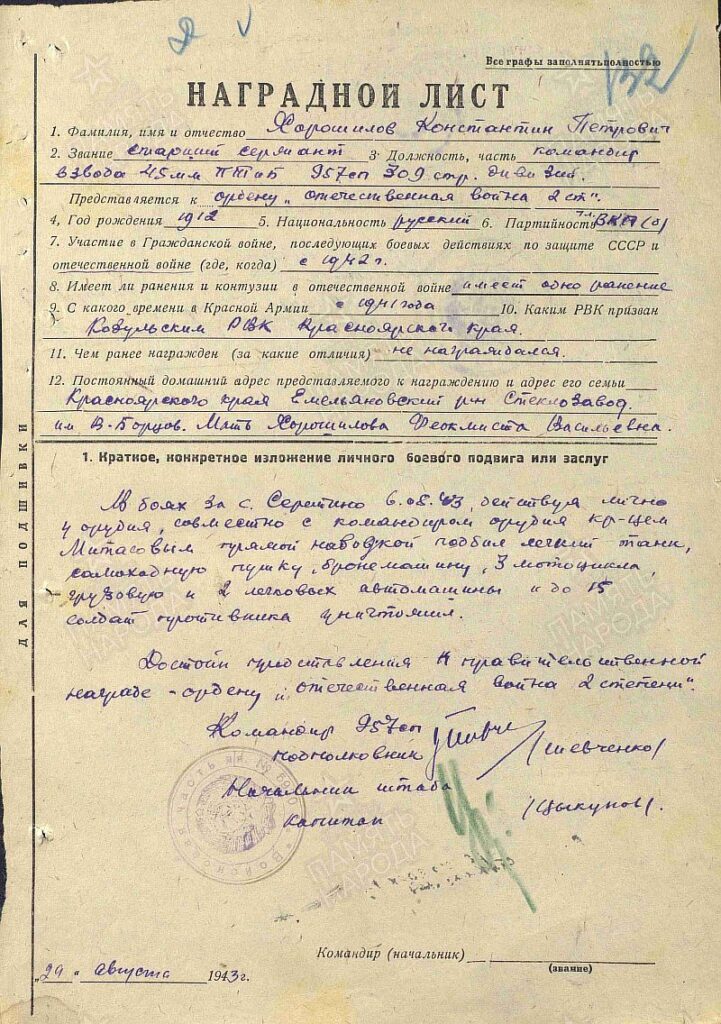 Все графы заполнять полностью
НАГРАДНОЙ ЛИСТ
1. Фамилия, имя и отчество Хорошилов Константин Петрович
2. Звание старший сержант 3. Должность, часть командир
взвода 45мм ПТМП 957сп 309 стр. дивизии.
Представляется к ордену „Отечественная война 2 ст".
4. Год рождения 1912 5. Национальность русский 6. Партийность ВКП(б)
7. Участие в Гражданской войне, последующих боевых действиях по защите СССР и
отечественной войне (где, когда) с 1942 г.
8. Имеет ли ранения и контузии в отечественной войне имеет одно ранение
9. С какого времени в Красной Армии с 1941 года 10. Каким РВК призван
Козульским РВК Красноярского края.
11. Чем ранее награжден (за какие отличия) не награждался.
12. Постоянный домашний адрес представляемого к награждению и адрес его семьи
Красноярского края Емельяновский р-н Стеклозавод
им. В-Борцов. Мать Хорошилова Феоктиста Васильевна.
1. Краткое, конкретное изложение личного боевого подвига или заслуг
В боях за с. 6.08.43, действуя лично
у орудия, совместно с командиром орудия кр-цем
Митасовым прямой наводкой подбил легкий танк,
самоходную пушку, бронемашину, 3 мотоцикла,
грузовую и 2 легковых автомашины и до 15
солдат противника уничтожил.
Достоин представления к правительственной
награде - ордену „Отечественная война 2 степени".
Командир 957сп
подполковник /Шевченко/
Начальник штаба
капитан /Цыкунов/.
ДЛЯ ПОДШИВКИ
Войсковая часть
Командир (начальник)
(звание)
„29" августа 1943 г.
ПАМЯТЬ НАРОДА